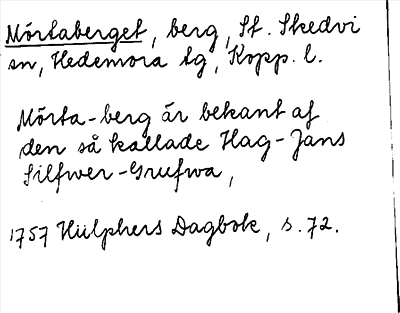 Mörtaberget, berg, St. Skedvi
sn, Hedemora tg, Kopp. l.
Mörta-berg är bekant af
den så kallade Hag-Jans
Silfwer-Grufwa,
1757 Hülphers Dagbok, s. 72.